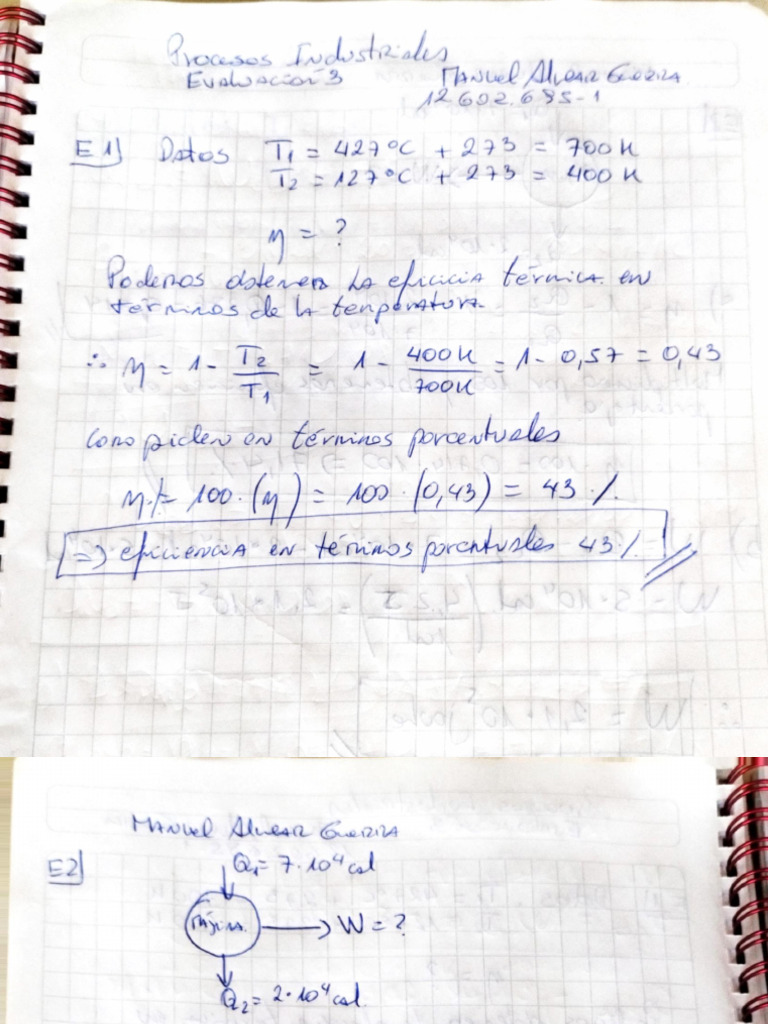 Procesos Industriales
Evaluación 3
Manuel Alvear Guerra
12.602.685-1
E1) Datos T₁ = 427°C + 273 = 700 K
T₂ = 127°C + 273 = 400 K
η = ?
Podemos obtener la eficiencia térmica en
términos de la temperatura.
∴ η = 1 - T₂/T₁ = 1 - 400K/700K = 1 - 0,57 = 0,43
como piden en términos porcentuales
η% = 100 · (η) = 100 · (0,43) = 43 %.
=> eficiencia en términos porcentuales 43 %
Manuel Alvear Guerra
E2)
Q₁ = 7·10⁴ cal
MÁQUINA → W = ?
Q₂ = 2·10⁴ cal.